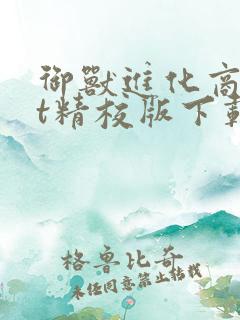 御獸進化商
t精校版下載
格鲁比奇
未经同意禁止转载